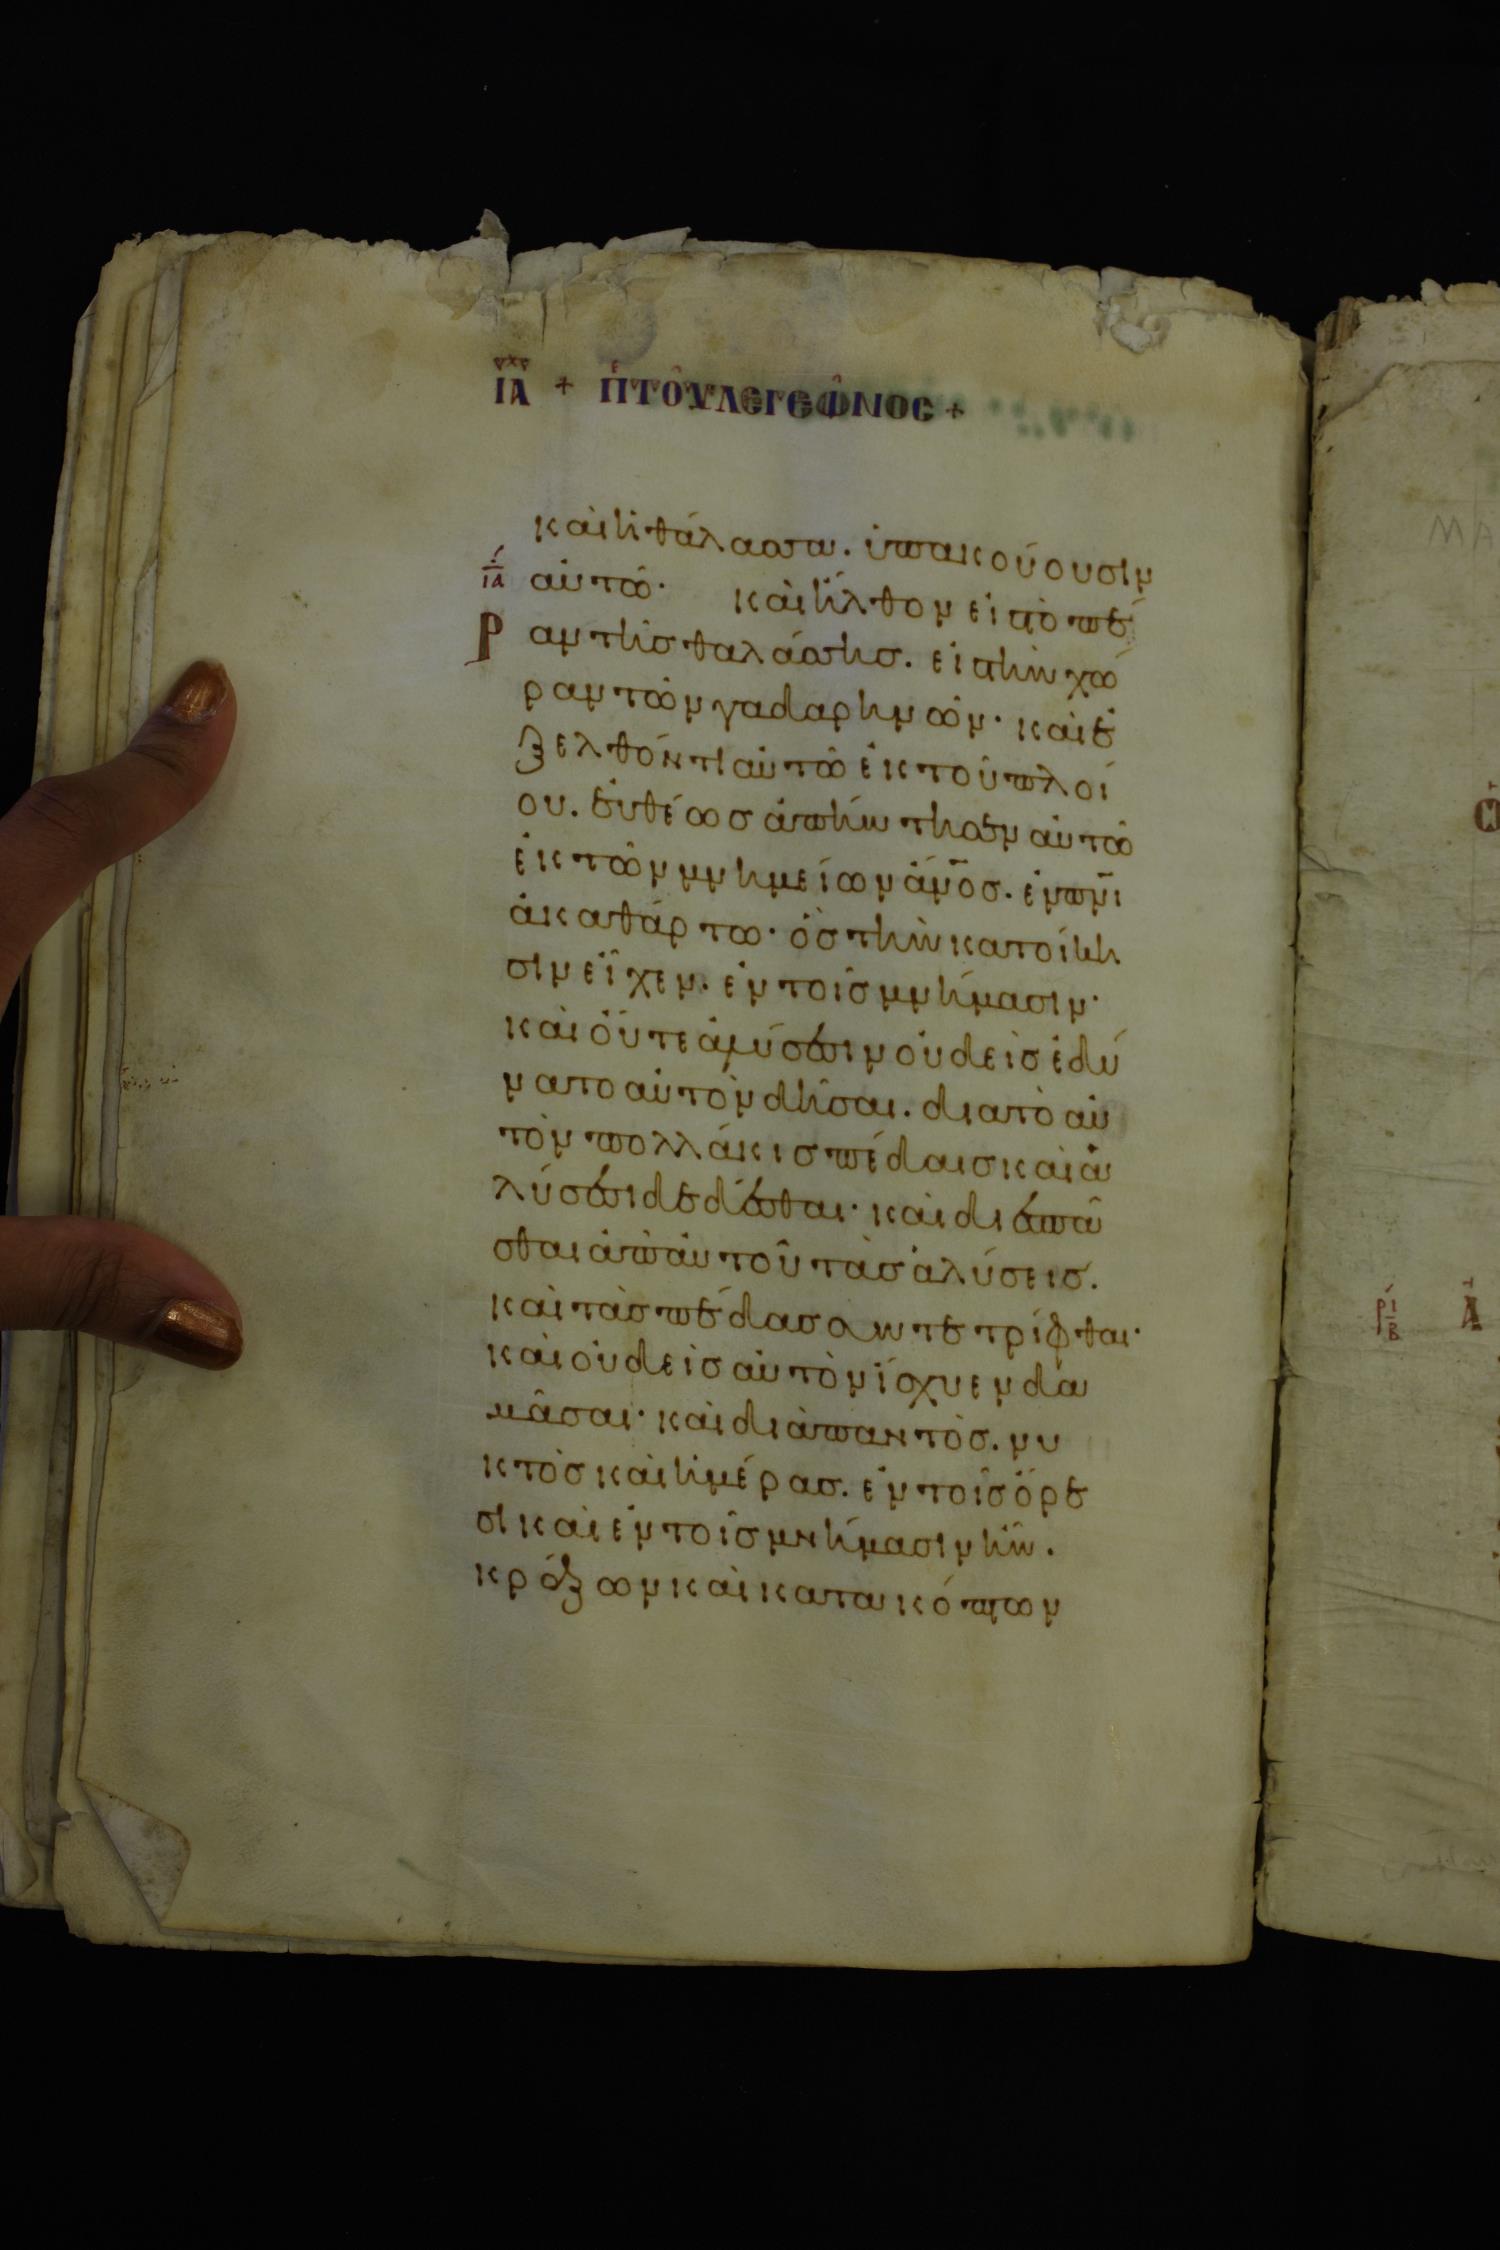 ΙΑ + ΠΕ ΤΟῦ ΛΕΓΕῶΝΟς +
καὶ ἡ θάλασσα. ὑπακούουσιν
αὐτῶ· καὶ ἦλθον εἰς τὸ πέ
ραν τῆς θαλάσσης. εἰς τὴν χώ
ραν τῶν γαδαρηνῶν· καὶ ἐ
ξελθόντι αὐτῶ ἐκ τοῦ πλοί
ου. εὐθέως ἀπήντησεν αὐτῶ
ἐκ τῶν μνημείων ἄνος. ἐν πνι
ἀκαθάρτω· ὃς τὴν κατοίκη
σιν εἶχεν. ἐν τοῖς μνήμασιν·
καὶ οὔτε ἁλύσεσιν οὐδεὶς ἐδύ
νατο αὐτὸν δῆσαι. διατὸ αὐ
τὸν πολλάκις πέδαις καὶ ἁ
λύσεσι δεδέσθαι· καὶ διεσπᾶ
σθαι ἀπ' αὐτοῦ τὰς ἁλύσεις.
καὶ τὰς πέδας συντετρίφθαι·
καὶ οὐδεὶς αὐτὸν ἴσχυεν δα
μᾶσαι· καὶ διὰ παντὸς. νυ
κτὸς καὶ ἡμέρας. ἐν τοῖς ὄρε
σι καὶ ἐν τοῖς μνήμασιν ἦν.
κράζων καὶ κατακόπτων
ΜΑ